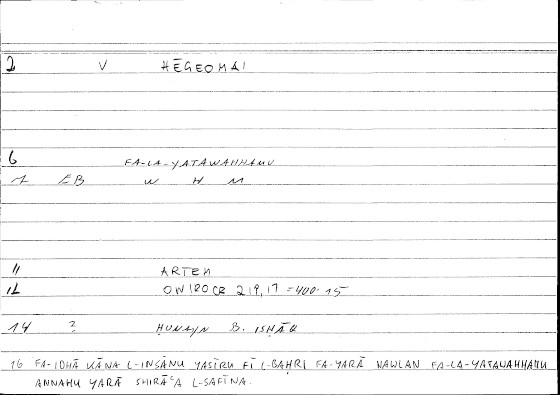 2 V HĒGEOMAI
6 FA-LA-YATAWAHHAMU
7 EB W H M
11 ARTEM
12 ONIROCR 219,17 = 400.15
14 ? ḤUNAYN B. ISḤĀQ
16 FA-IDHĀ KĀNA L-INSĀNU YASĪRU FĪ L-BAḤRI FA-YARĀ ḤAWLAN FA-LA-YATAWAHHAMU
ANNAHU YARĀ SHIRĀʿA L-SAFĪNA.